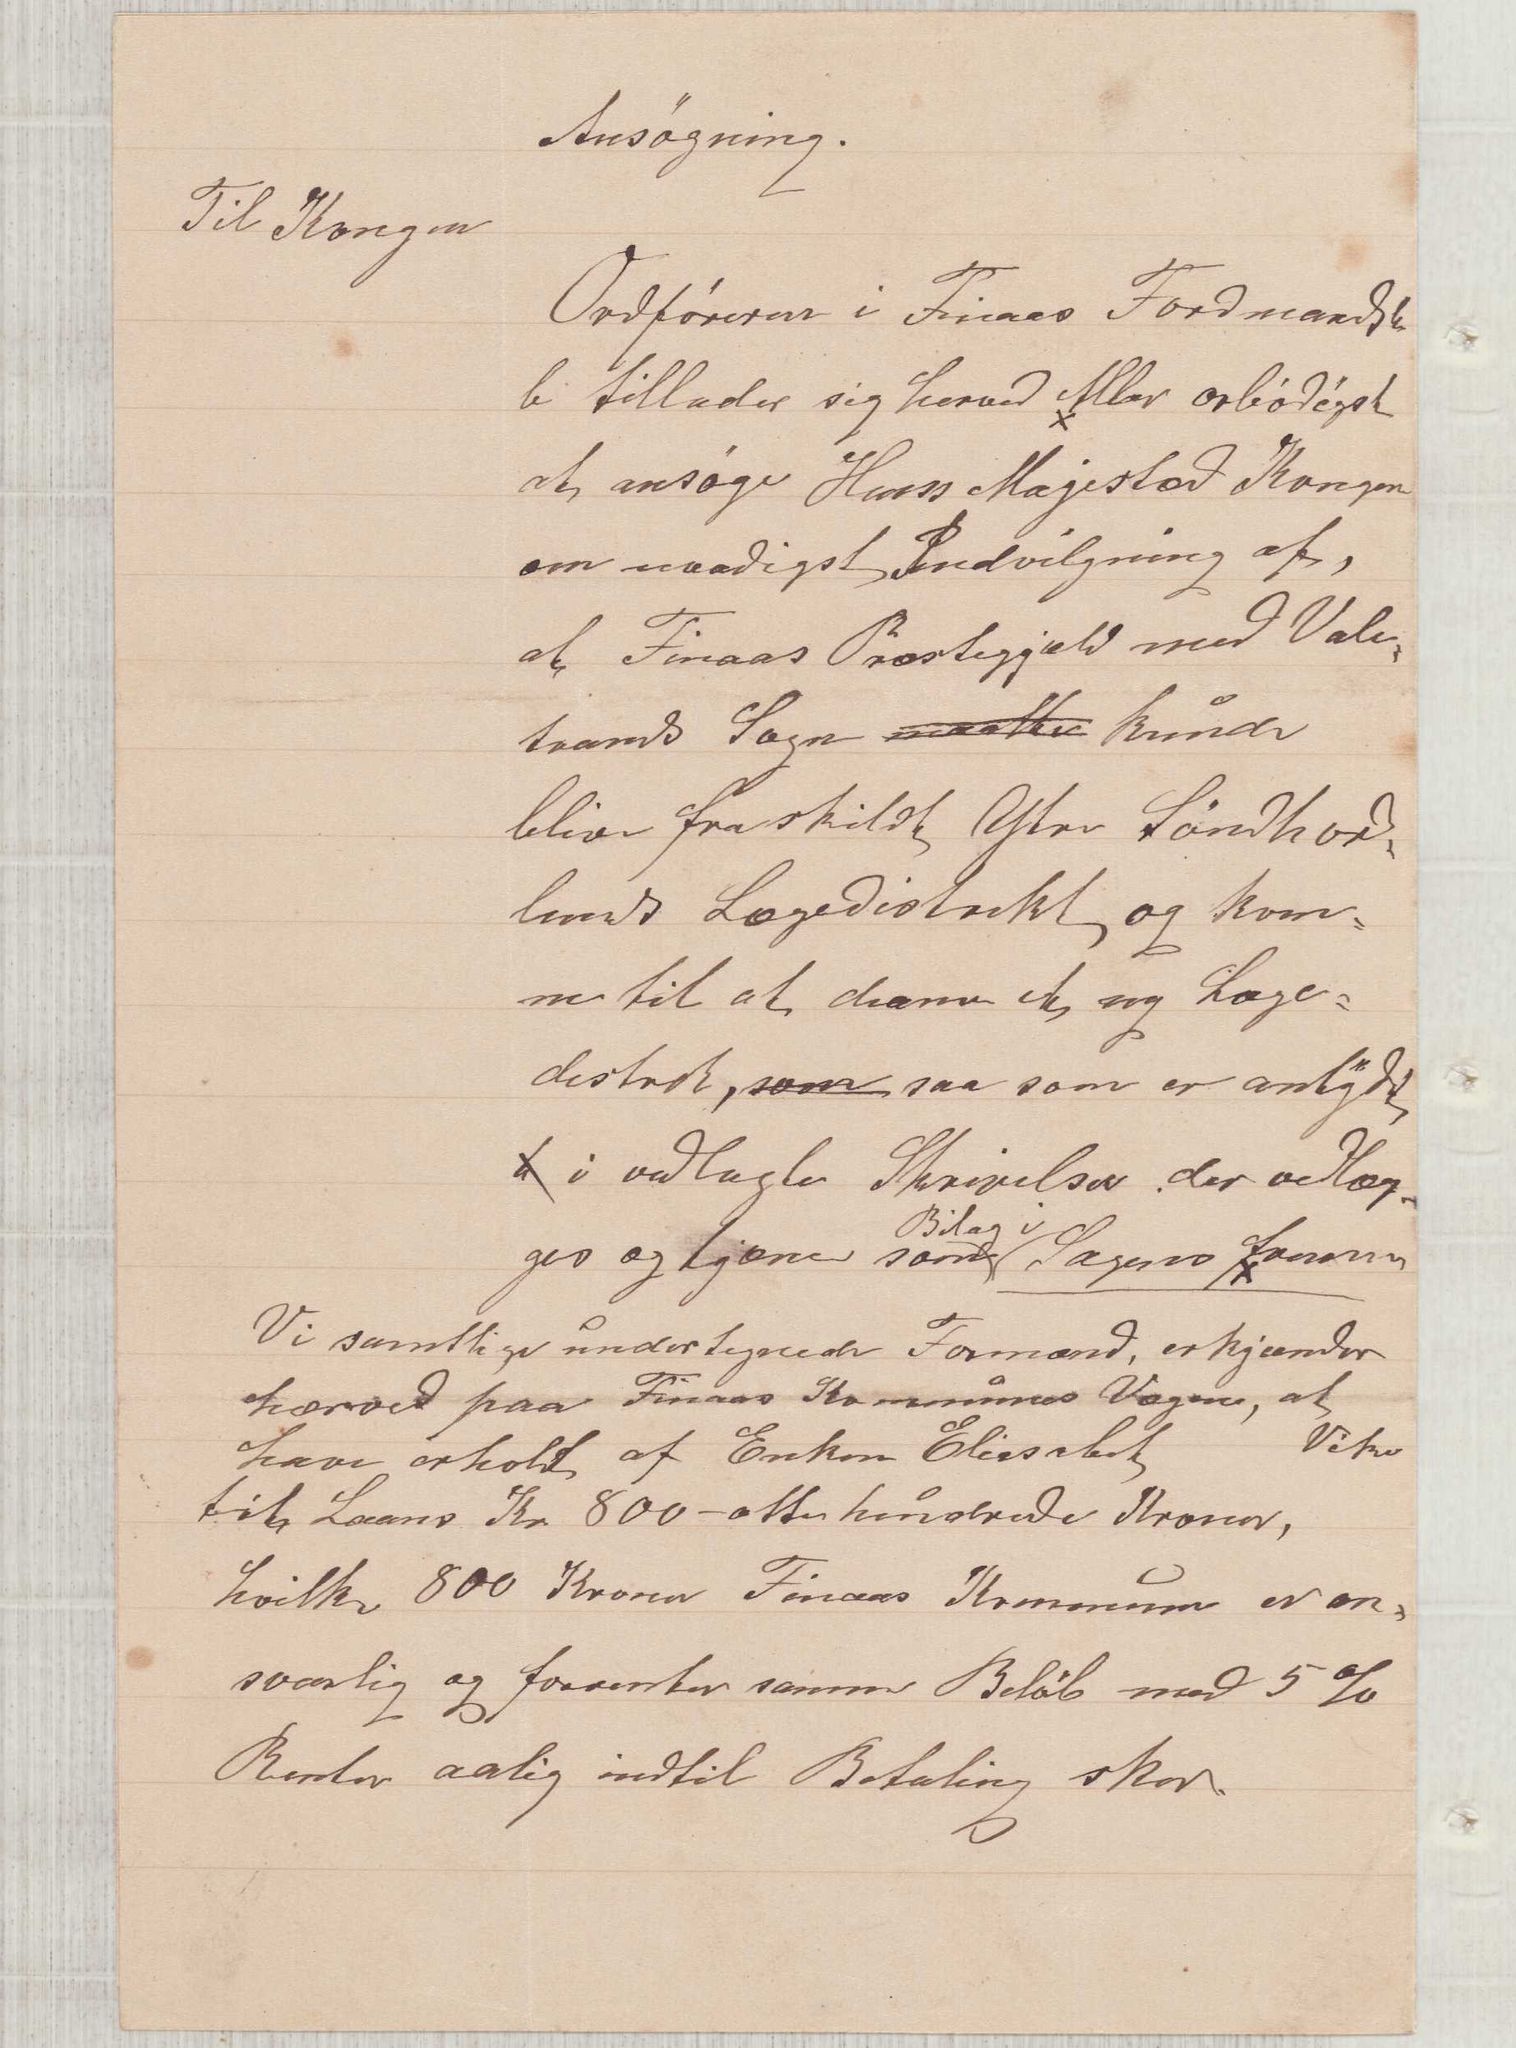 Ansögning.
Til Kongen
Ordföreren i Finaas Fordmandsk
b tillader sig herved Aller ærbödigst
at ansöge Hans Majestæd Kongen
om naadigst Indvilgning af,
at Finaas Præstegjæld med Vale-
trands Sogn maatte kunde
blive fraskildt Ytre Söndhord-
lands Lægedistrikt og kom-
me til at danne et ny Læge-
destrik, som saa som er antydt
i vedlagte Skrivelser der vedlæg-
ges og tjene som Bilag i Sagens fremme
Vi samtlige undertegnede Formænd, erkjænder
hærved paa Finaas Kommunes Vægne, at
have erholdt af Enken Eliesabet Vike
til Laans Kr 800 - otte hundrede Kroner,
hvilke 800 Kroner Finaas Kommune er an-
svarlig og forrenter samme Belöb med 5 %
Renter aalig indtil Betaling sker.